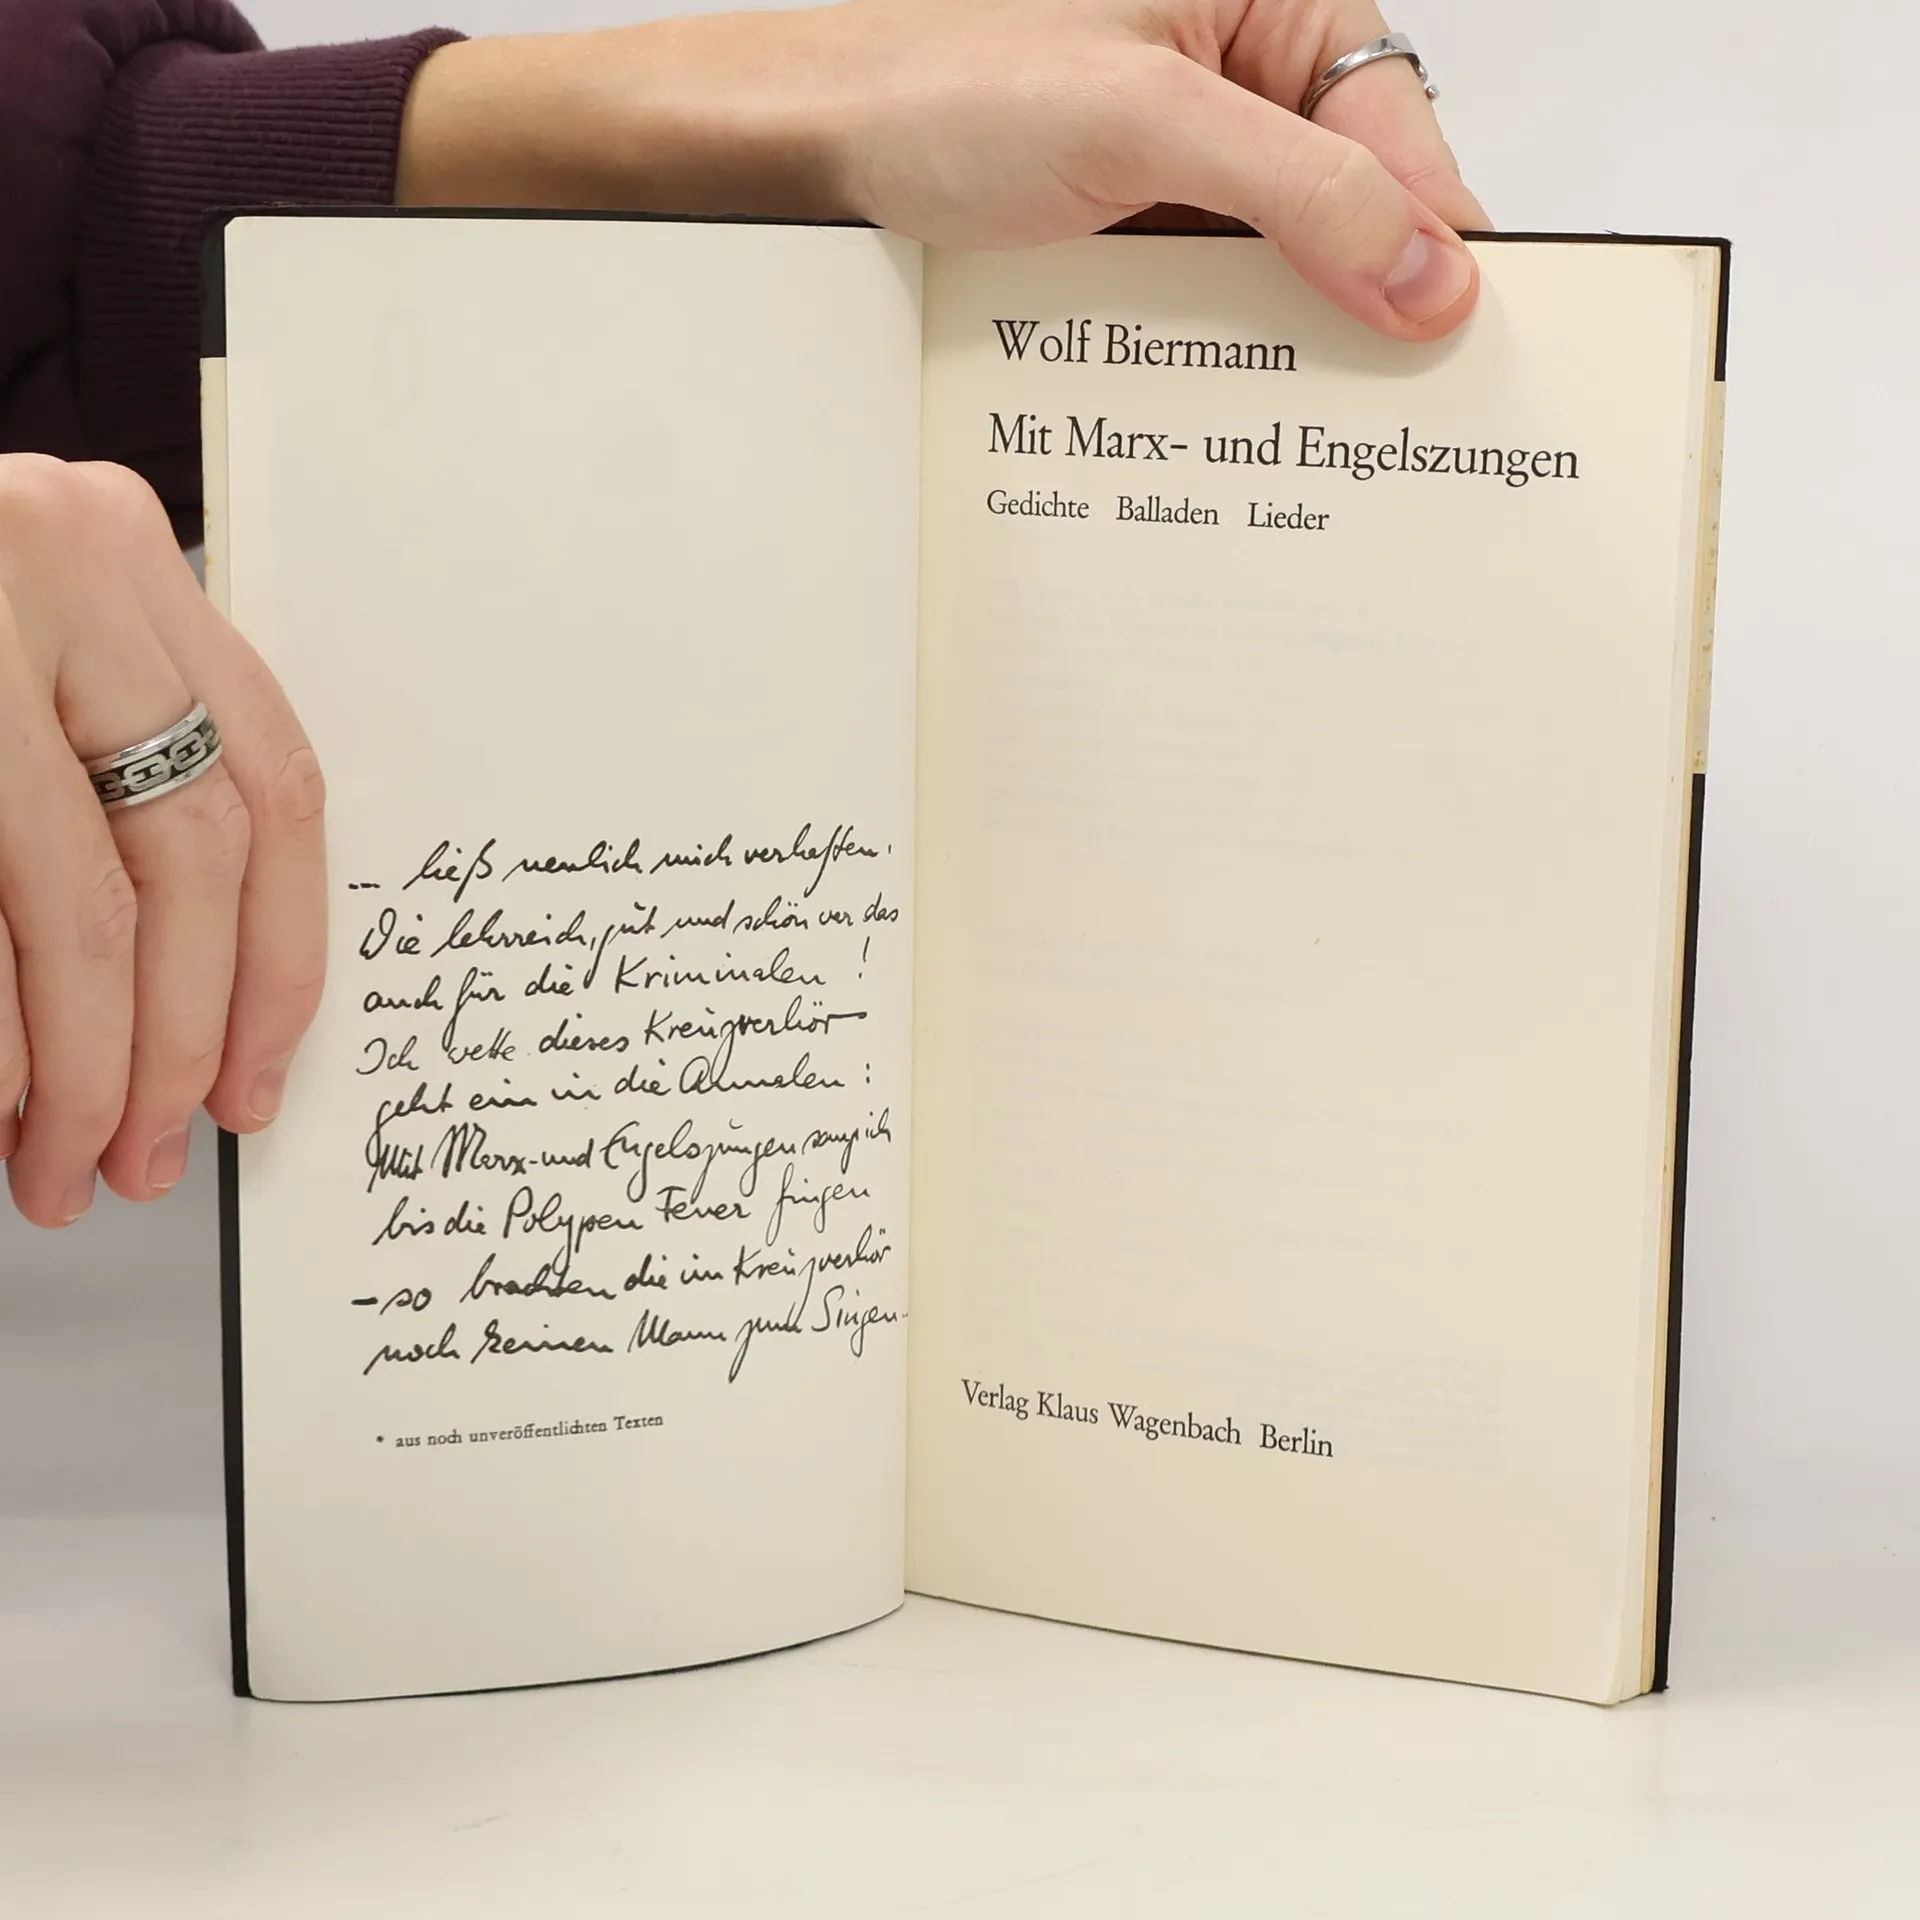 ... ließ neulich mich verhaften.
Wie lehrreich, gut und schön war das
auch für die Kriminalen!
Ich wette dieses Kreuzverhör
geht ein in die Annalen:
Mit Marx- und Engelszungen sang ich
bis die Polypen Feuer fingen
– so brachten die im Kreuzverhör
noch keinen Mann zum Singen.
* aus noch unveröffentlichten Texten
Wolf Biermann
Mit Marx- und Engelszungen
Gedichte Balladen Lieder
Verlag Klaus Wagenbach Berlin